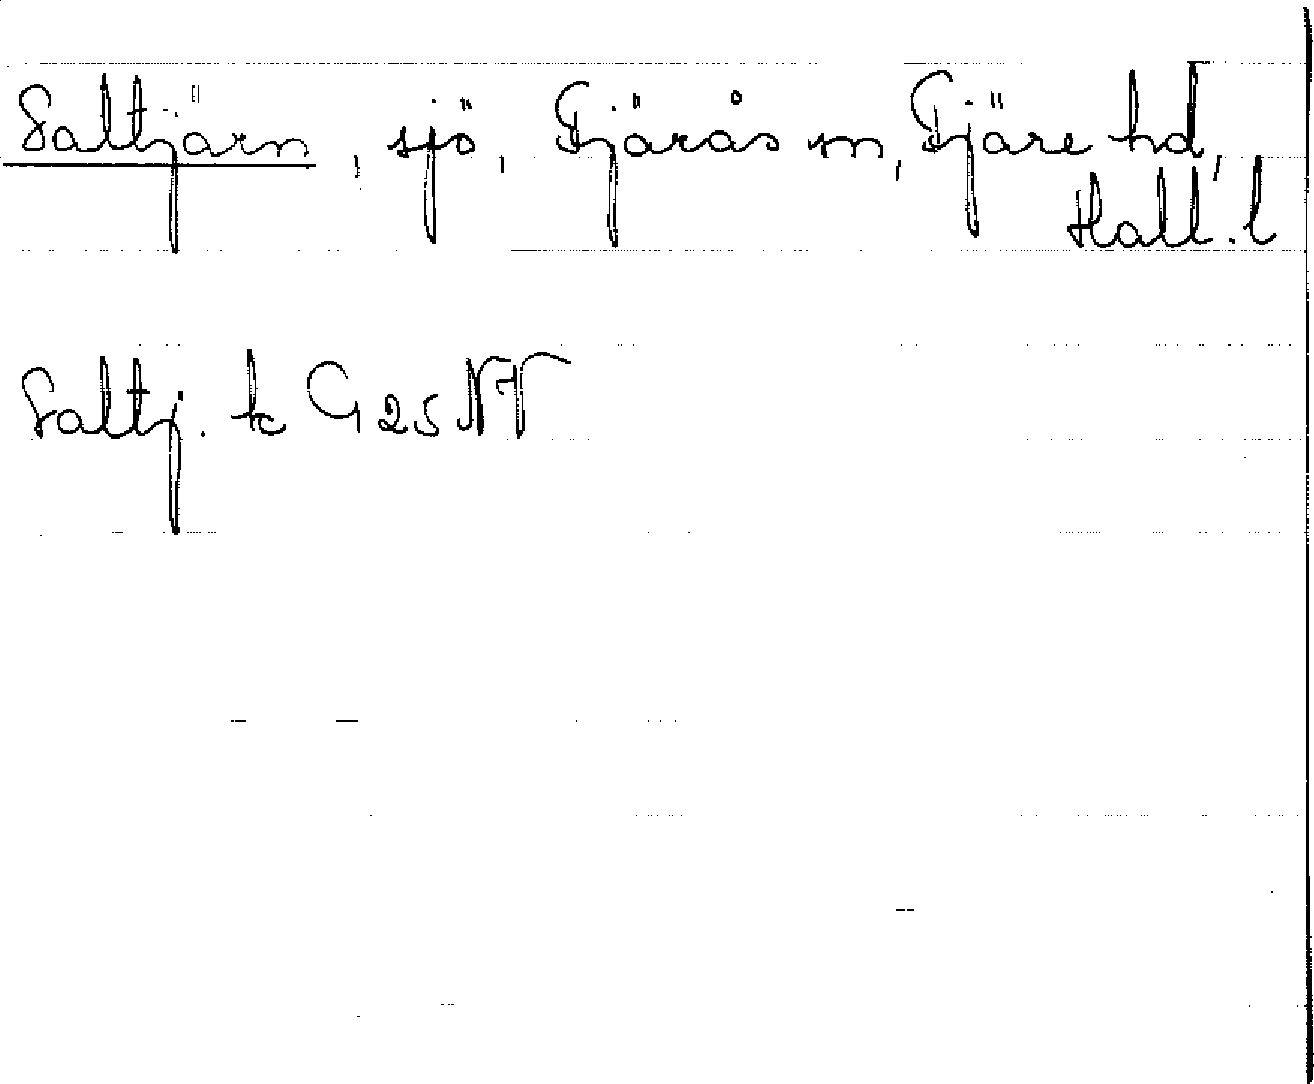 Saltjärn, sjö, Fjärås sn, Fjäre hd,
Hall. l
Saltj. k G 25 NV